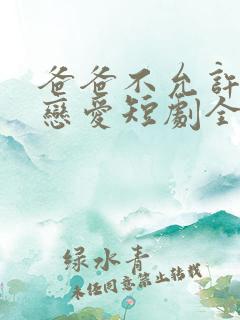 爸爸不允許
戀愛短劇全
绿水青
未经同意禁止转载